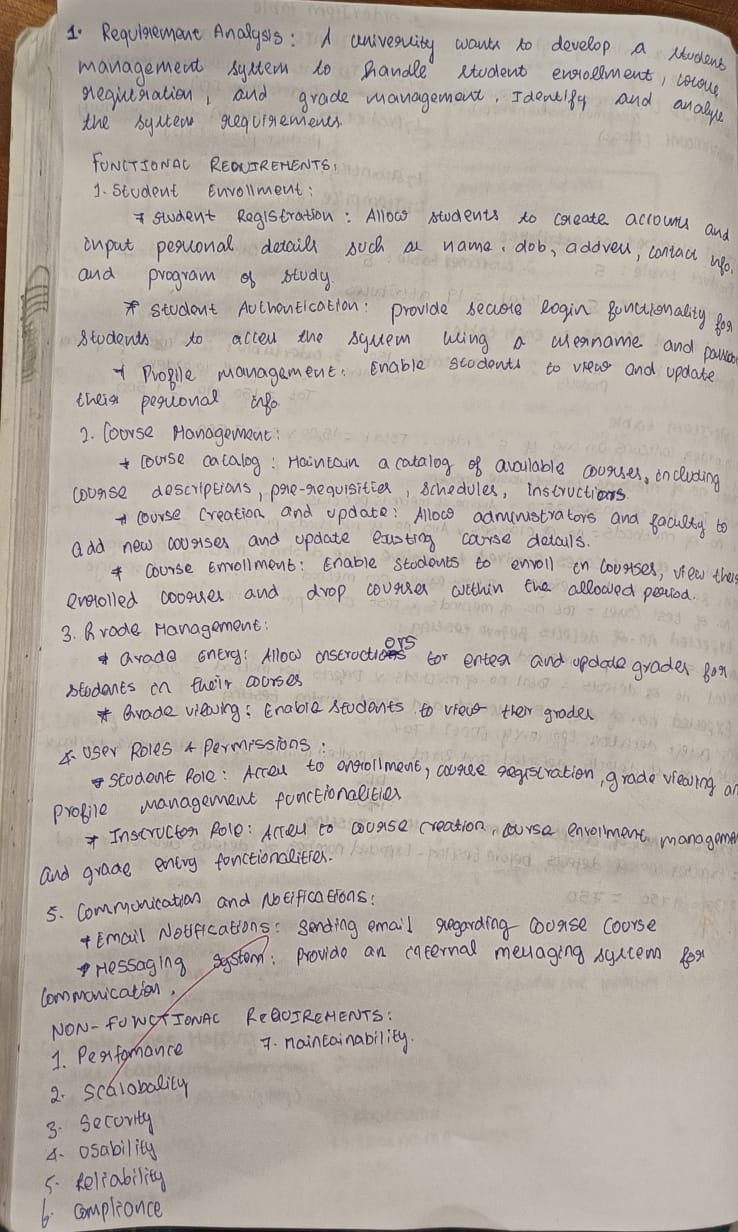 1. Requirement Analysis: A university wants to develop a student
management system to handle student enrollment, course
registration, and grade management. Identify and analyse
the system requirements.
FUNCTIONAL REQUIREMENTS:
1. Student Enrollment:
* Student Registration: Allow students to create accounts and
input personal details such as name, dob, address, contact info,
and program of study.
* Student Authentication: provide secure login functionality for
students to access the system using a username and
* Profile management: Enable students to view and update
their personal info
2. Course Management:
* Course catalog: Maintain a catalog of available courses, including
course descriptions, pre-requisities, schedules, instructions
* Course creation and update: Allow administrators and faculty to
add new courses and update existing course details.
* Course Enrollment: Enable students to enroll in courses, view their
enrolled courses and drop courses within the allowed period.
3. Grade Management:
* Grade Entry: Allow instructors for enter and update grades for
students in their courses
* Grade viewing: Enable students to view their grades
4. User Roles & Permissions:
* Student Role: Access to enrollment, course registration, grade viewing an
Profile management functionalities
* Instructor Role: Access to course creation, course enrollment management
and grade entry fonctionalities.
5. Communication and Notifications:
* Email Notifications: Sending email regarding course course
* Messaging System: Provide an internal messaging system for
communication.
NON-FUNCTIONAL REQUIREMENTS:
1. Perfomance 7. Maintainability.
2. Scalobality
3. Security
4. Usability
5. Reliability
6. Compliance